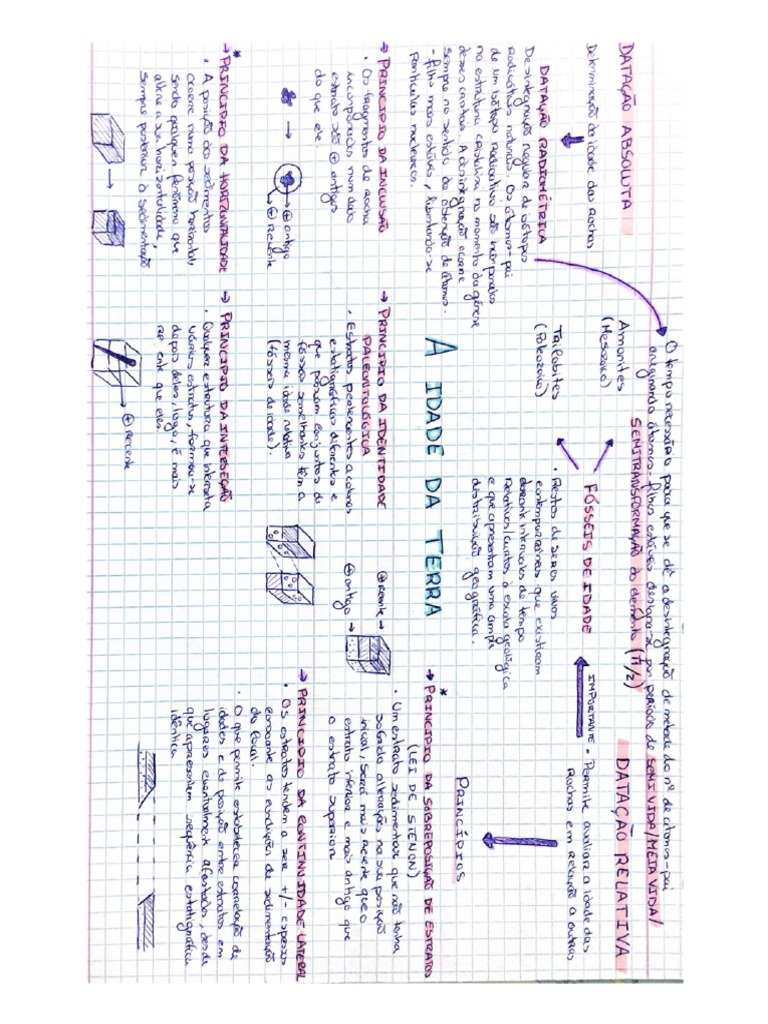 A IDADE DA TERRA
DATAÇÃO ABSOLUTA
Determinação da idade das Rochas
DATAÇÃO RADIOMÉTRICA
Desintegração regular de isótopos
radioativos naturais. Os átomos-pai
de um isótopo radioativo são incorporados
na estrutura cristalina no momento da génese
desses cristais. A desintegração ocorre
sempre no sentido da obtenção de átomos-
-filho mais estáveis, libertando-se
partículas nucleares.
O tempo necessário para que se dê a desintegração de metade do nº de átomos-pai
originando átomos-filhos estáveis designa-se por período de SEMIVIDA/MEIA VIDA/
SEMITRANSFORMAÇÃO do elemento (T1/2)
DATAÇÃO RELATIVA
• Permite avaliar a idade das
Rochas em relação a outras
IMPORTANTE
FÓSSEIS DE IDADE
• Restos de seres vivos
contemporâneos que existiram
durante intervalos de tempo
Relativos/curtos à escala geológica
e que apresentam uma ampla
distribuição geográfica.
Amonites
(Mesozoico)
Trilobites
(Paleozoico)
PRINCÍPIOS
* → PRINCÍPIO DA SOBREPOSIÇÃO DE ESTRATOS
(LEI DE STENON)
• Um estrato sedimentar que não tenha
sofrido alteração na sua posição
inicial, será mais recente que o
estrato inferior e mais antigo que
o estrato superior
⊕ recente →
⊕ antigo →
→ PRINCÍPIO DA CONTINUIDADE LATERAL
• Os estratos tendem a ser +/- espessos
consoante as condições de sedimentação
do local.
• O que permite estabelecer correlação de
idades e de posição entre estratos em
lugares eventualmente afastados, desde
que apresentem sequência estratigráfica
idêntica
→ PRINCÍPIO DA IDENTIDADE
PALEONTOLÓGICA
• Estratos pertencentes a colunas
estratigráficas diferentes e
que possuam conjuntos de
fósseis semelhantes têm a
mesma idade relativa
(fósseis de idade).
→ PRINCÍPIO DA INTERSEÇÃO
• Qualquer estrutura que interseta
vários estratos, formou-se
depois deles, logo, é mais
recente que eles
⊕ Recente
→ PRINCÍPIO DA INCLUSÃO
• Os fragmentos de rocha
incorporados num dado
estrato são ⊕ antigos
do que ele.
⊕ antigo
⊕ Recente
* → PRINCÍPIO DA HORIZONTALIDADE
• A posição dos sedimentos
ocorre numa posição horizontal,
sendo qualquer fenómeno que
altere a sua horizontalidade,
sempre posterior à sedimentação